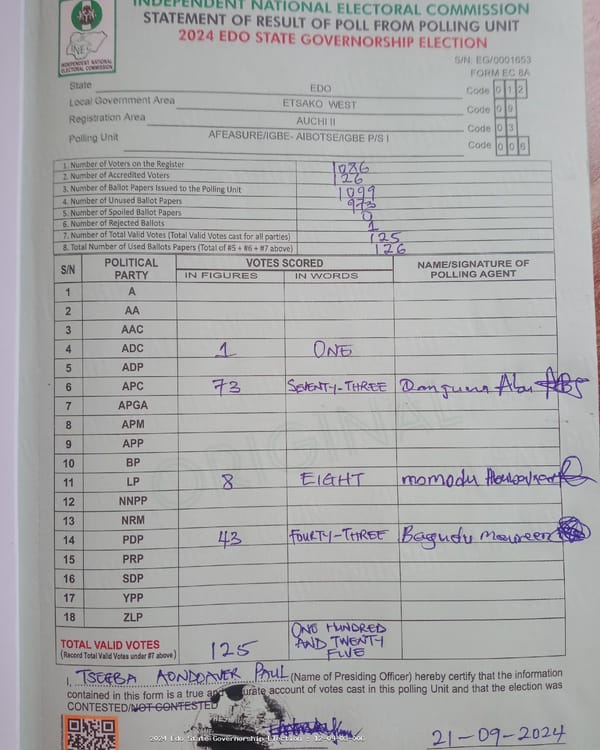 INDEPENDENT NATIONAL ELECTORAL COMMISSION
STATEMENT OF RESULT OF POLL FROM POLLING UNIT
2024 EDO STATE GOVERNORSHIP ELECTION
INDEPENDENT NATIONAL
ELECTORAL COMMISSION
S/N: EG/0001653
FORM EC 8A
State EDO Code 0 1 2
Local Government Area ETSAKO WEST Code 0 9
Registration Area AUCHI II Code 0 3
Polling Unit AFEASURE/IGBE- AIBOTSE/IGBE P/S I Code 0 0 6
1. Number of Voters on the Register 1086
2. Number of Accredited Voters 126
3. Number of Ballot Papers Issued to the Polling Unit 1099
4. Number of Unused Ballot Papers 973
5. Number of Spoiled Ballot Papers 0
6. Number of Rejected Ballots 1
7. Number of Total Valid Votes (Total Valid Votes cast for all parties) 125
8. Total Number of Used Ballots Papers (Total of #5 + #6 + #7 above) 126
S/N POLITICAL PARTY VOTES SCORED NAME/SIGNATURE OF POLLING AGENT
IN FIGURES IN WORDS
1 A
2 AA
3 AAC
4 ADC 1 ONE
5 ADP
6 APC 73 SEVENTY-THREE Abu
7 APGA
8 APM
9 APP
10 BP
11 LP 8 EIGHT momodu
12 NNPP
13 NRM
14 PDP 43 FOURTY-THREE Bagudu maureen
15 PRP
16 SDP
17 YPP
18 ZLP
ORIGINAL
TOTAL VALID VOTES 125 ONE HUNDRED AND TWENTY FIVE
(Record Total Valid Votes under #7 above)
I, TSEEBA AONDOAVER PAUL (Name of Presiding Officer) hereby certify that the information
contained in this form is a true and accurate account of votes cast in this polling Unit and that the election was
CONTESTED/NOT CONTESTED
21-09-2024
2024 Edo State Governorship Election - 12-09-03-006